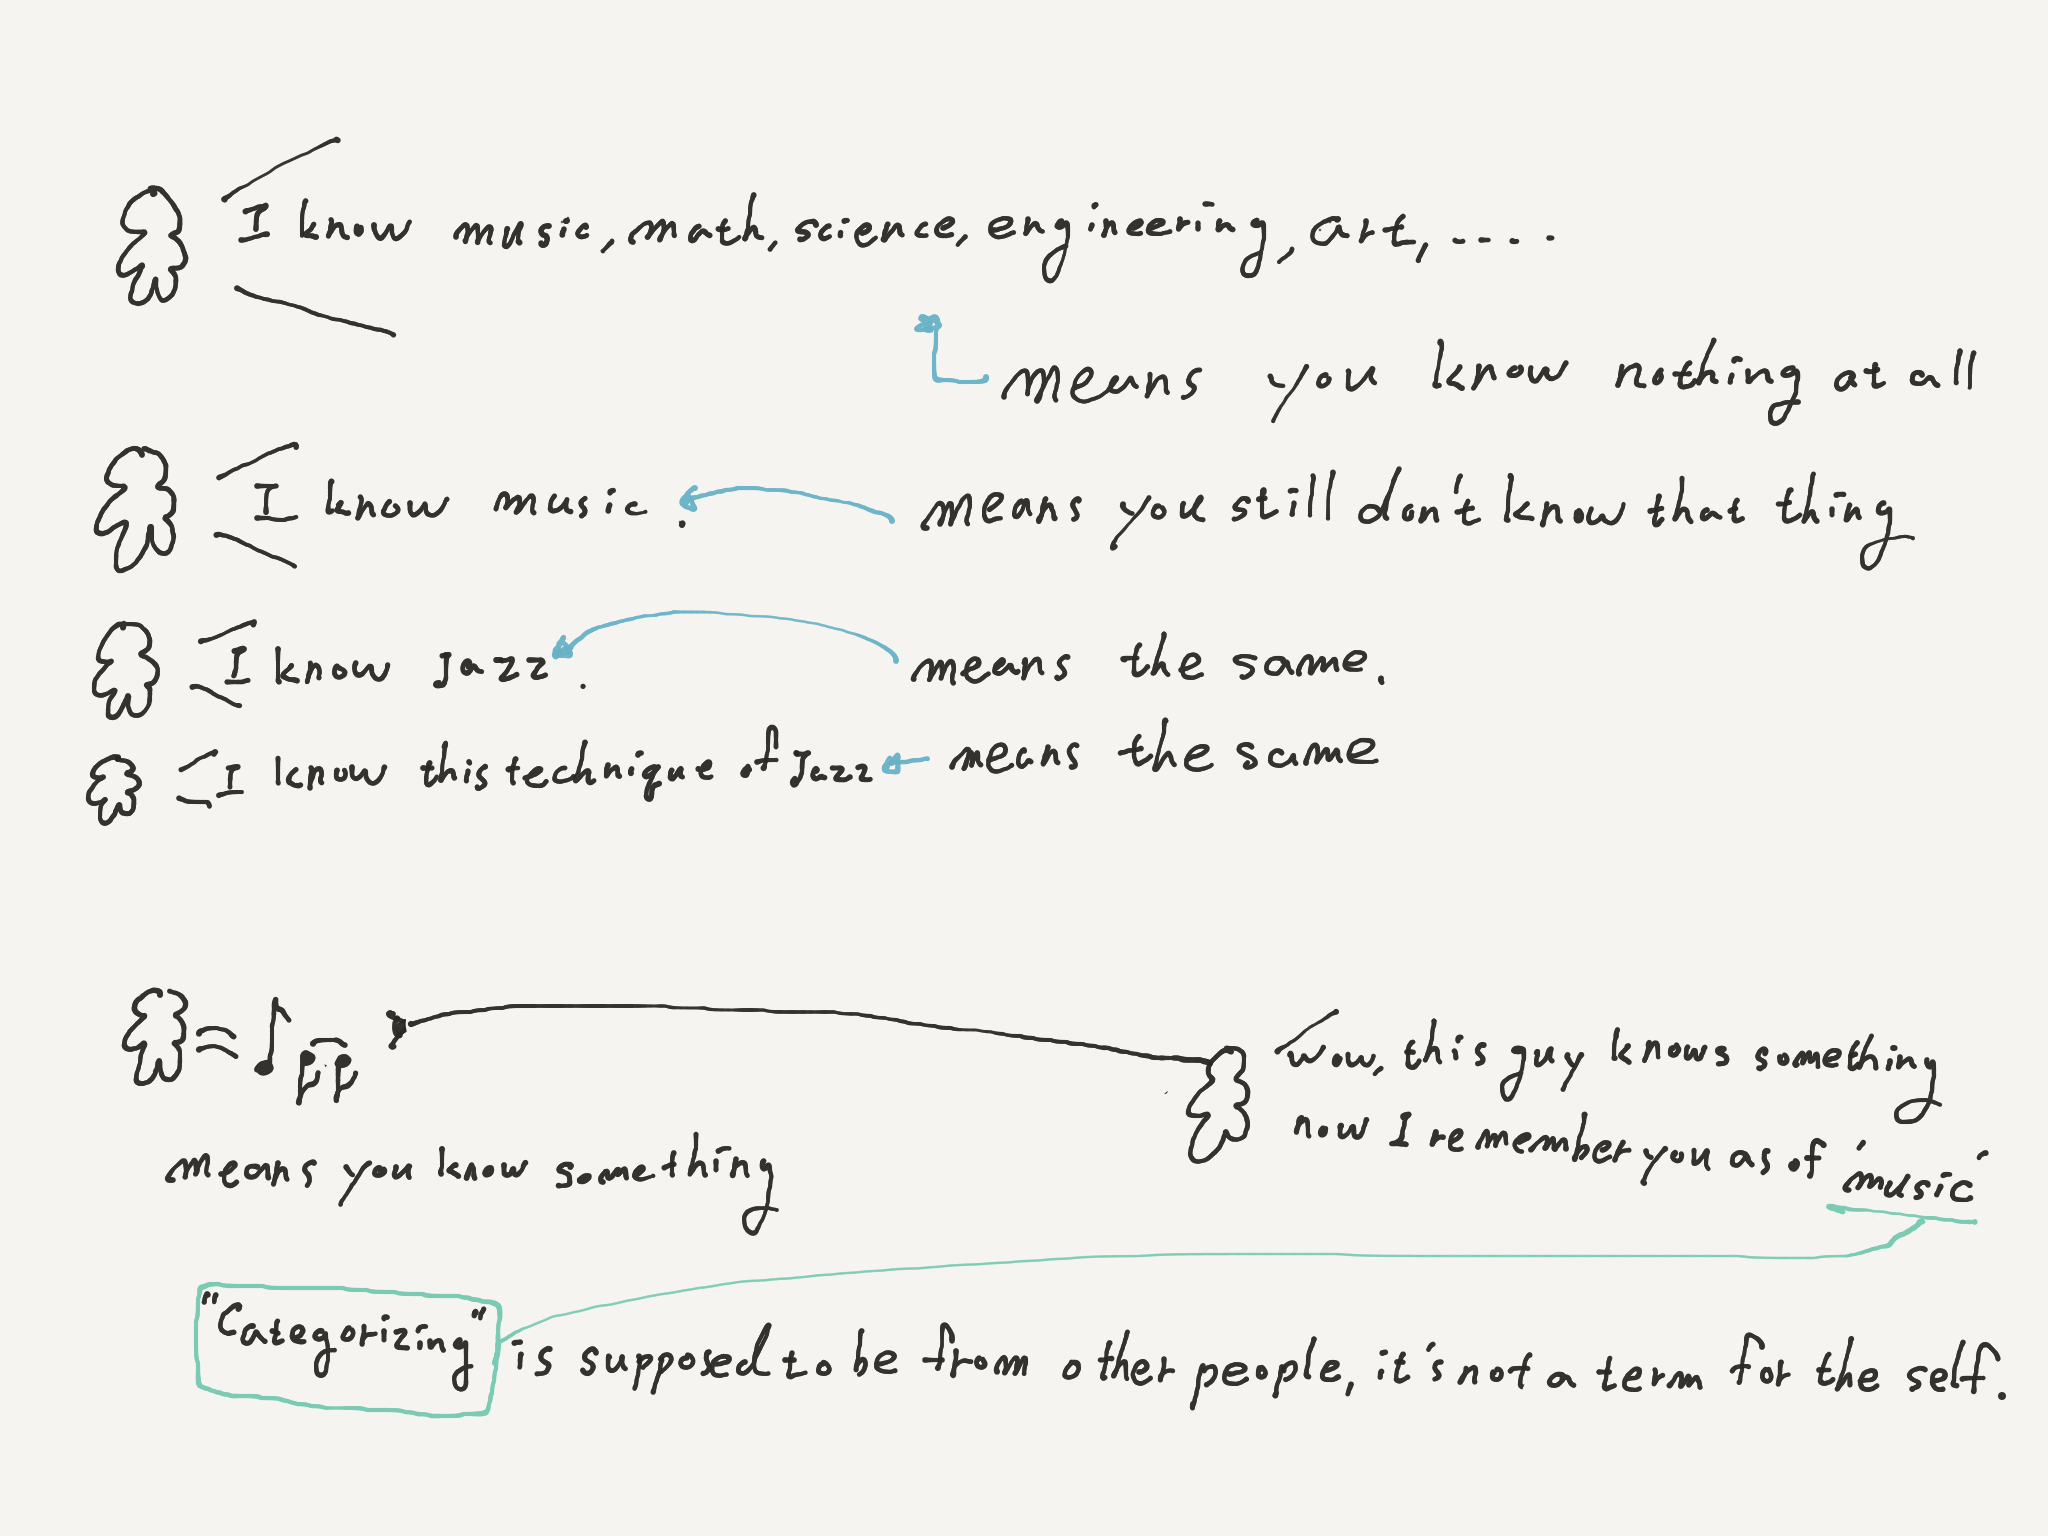 I know music, math, science, engineering, art, ....
means you know nothing at all
I know music. means you still don't know that thing
I know Jazz. means the same.
I know this technique of Jazz means the same
wow, this guy knows something
now I remember you as of 'music'
means you know something
"Categorizing" is supposed to be from other people, it's not a term for the self.